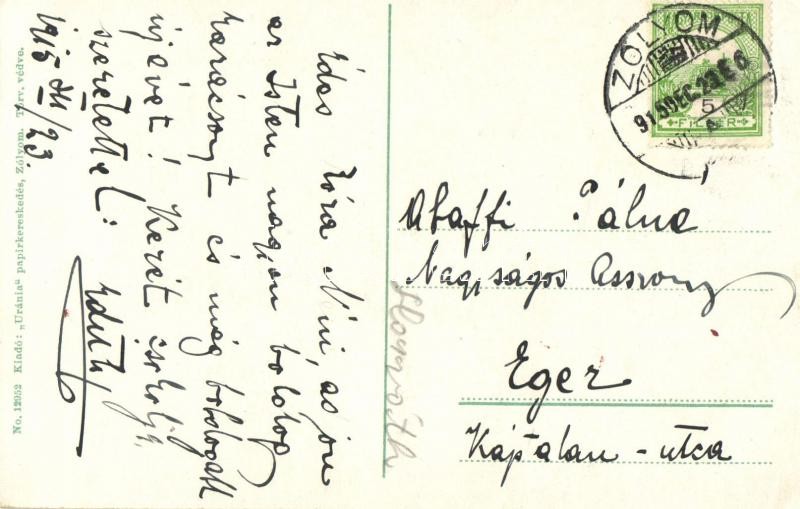 Édes Nóra Néni, as jön
az Isten nagyon boldog
karácsonyt és még boldogabb
újévet! Kezét csókolja
szeretettel:
Edith
1915 XII/23.
No. 12952 Kiadó: „Uránia" papirkereskedés, Zólyom. Törv. védve.
ZÓLYOM
915 DEC. 23
5
FILLÉR
Abaffi Pálné
Nagyságos Asszony
Eger
Káptalan-utca
Horváth